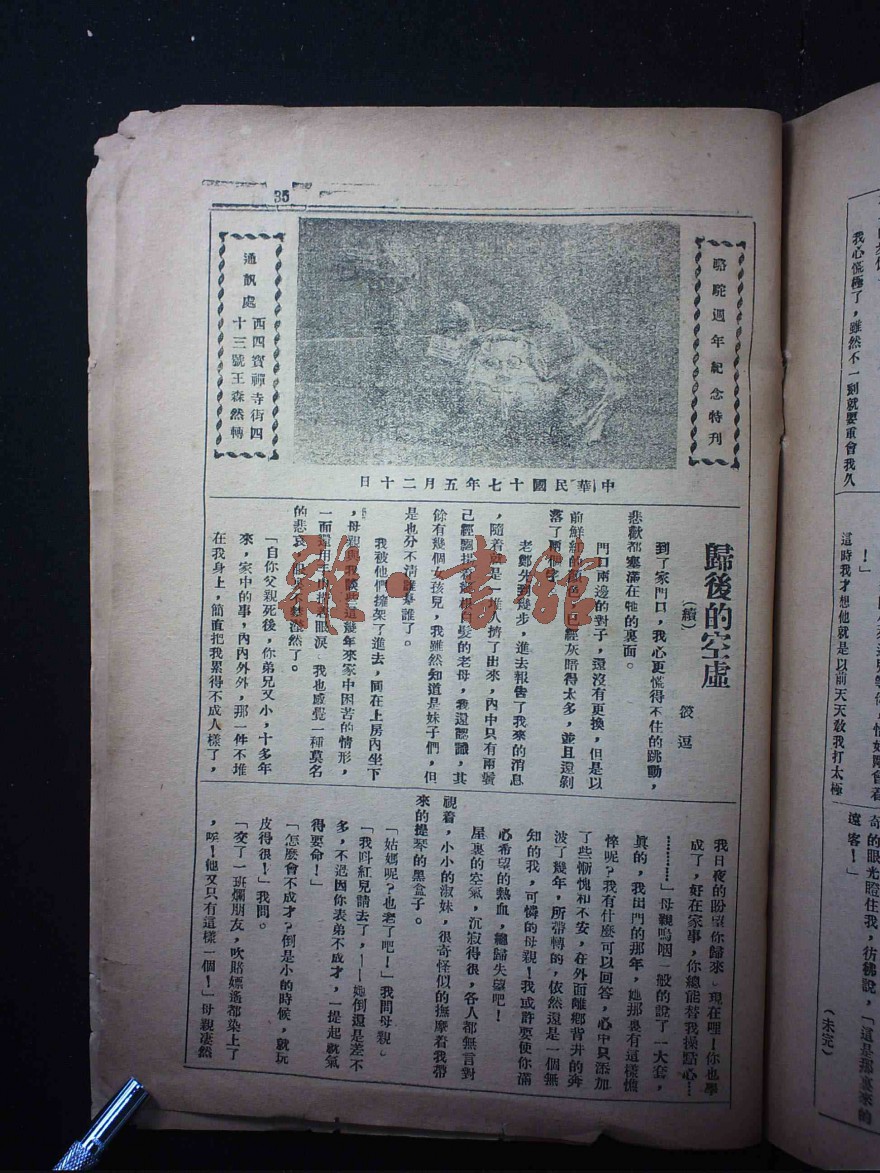 35
駱駝週年紀念特刊
通訊處
西四寶禪寺街四
十三號王森然轉
中華民國十七年五月二十日
歸後的空虛
（續）
筱逗
到了家門口，我心更慌得不住的跳動，
悲歡都塞滿在牠的裏面。
門口兩邊的對子，還沒有更換，但是以
前鮮紅的顏色，已經灰暗得太多，並且還剝
落了兩個字。
老鄭先到幾步，進去報告了我來的消息
，隨着就是一堆人擠了出來，內中只有兩鬢
已經飄拂着幾根白髮的老母，我還認識，其
餘有幾個女孩兒，我雖然知道是妹子們，但
是也分不清誰是誰了。
我被他們擁架了進去，同在上房內坐下
，母親與我談些這幾年來家中困苦的情形，
一面還用手巾拭着眼淚，我也感覺一種莫名
的悲哀，
「自你父親死後，你弟兄又小，十多年
來，家中的事，內內外外，那一件不堆
在我身上，簡直把我累得不成人樣了，
我日夜的盼望你歸來，現在哩！你也學
成了，好在家事，你總能替我操點心……
…………」母親嗚咽一般的說了一大套，
眞的，我出門的那年，她那裏有這樣憔
悴呢？我有什麼可以回答，心中只添加
了些慚愧和不安，在外面離鄉背井的奔
波了幾年，所帶轉的，依然還是一個無
知的我，可憐的母親！我或許要使你滿
心希望的熱血，總歸失望吧！
屋裏的空氣，沉寂得很，各人都無言對
視着，小小的淑妹，很奇怪似的撫摩着我帶
來的提琴的黑盒子。
「姑媽呢？也老了吧！」我問母親。
「我叫紅兒請去了，——她倒還是差不
多，不過因你表弟不成才，一提起就氣
得要命！」
「怎麼會不成才？倒是小的時候，就玩
皮得很！」我問。
「交了一班爛朋友，吹賭嫖遙都染上了
，呼！他又只有這樣一個！」母親凄然
雜·書館
我心慌極了，雖然不一刻就要重會我久
！」
這時我才想他就是以前天天敎我打太極
奇的眼光瞪住我，彷彿說，「這是那裏來的
遠客！」
（未完）